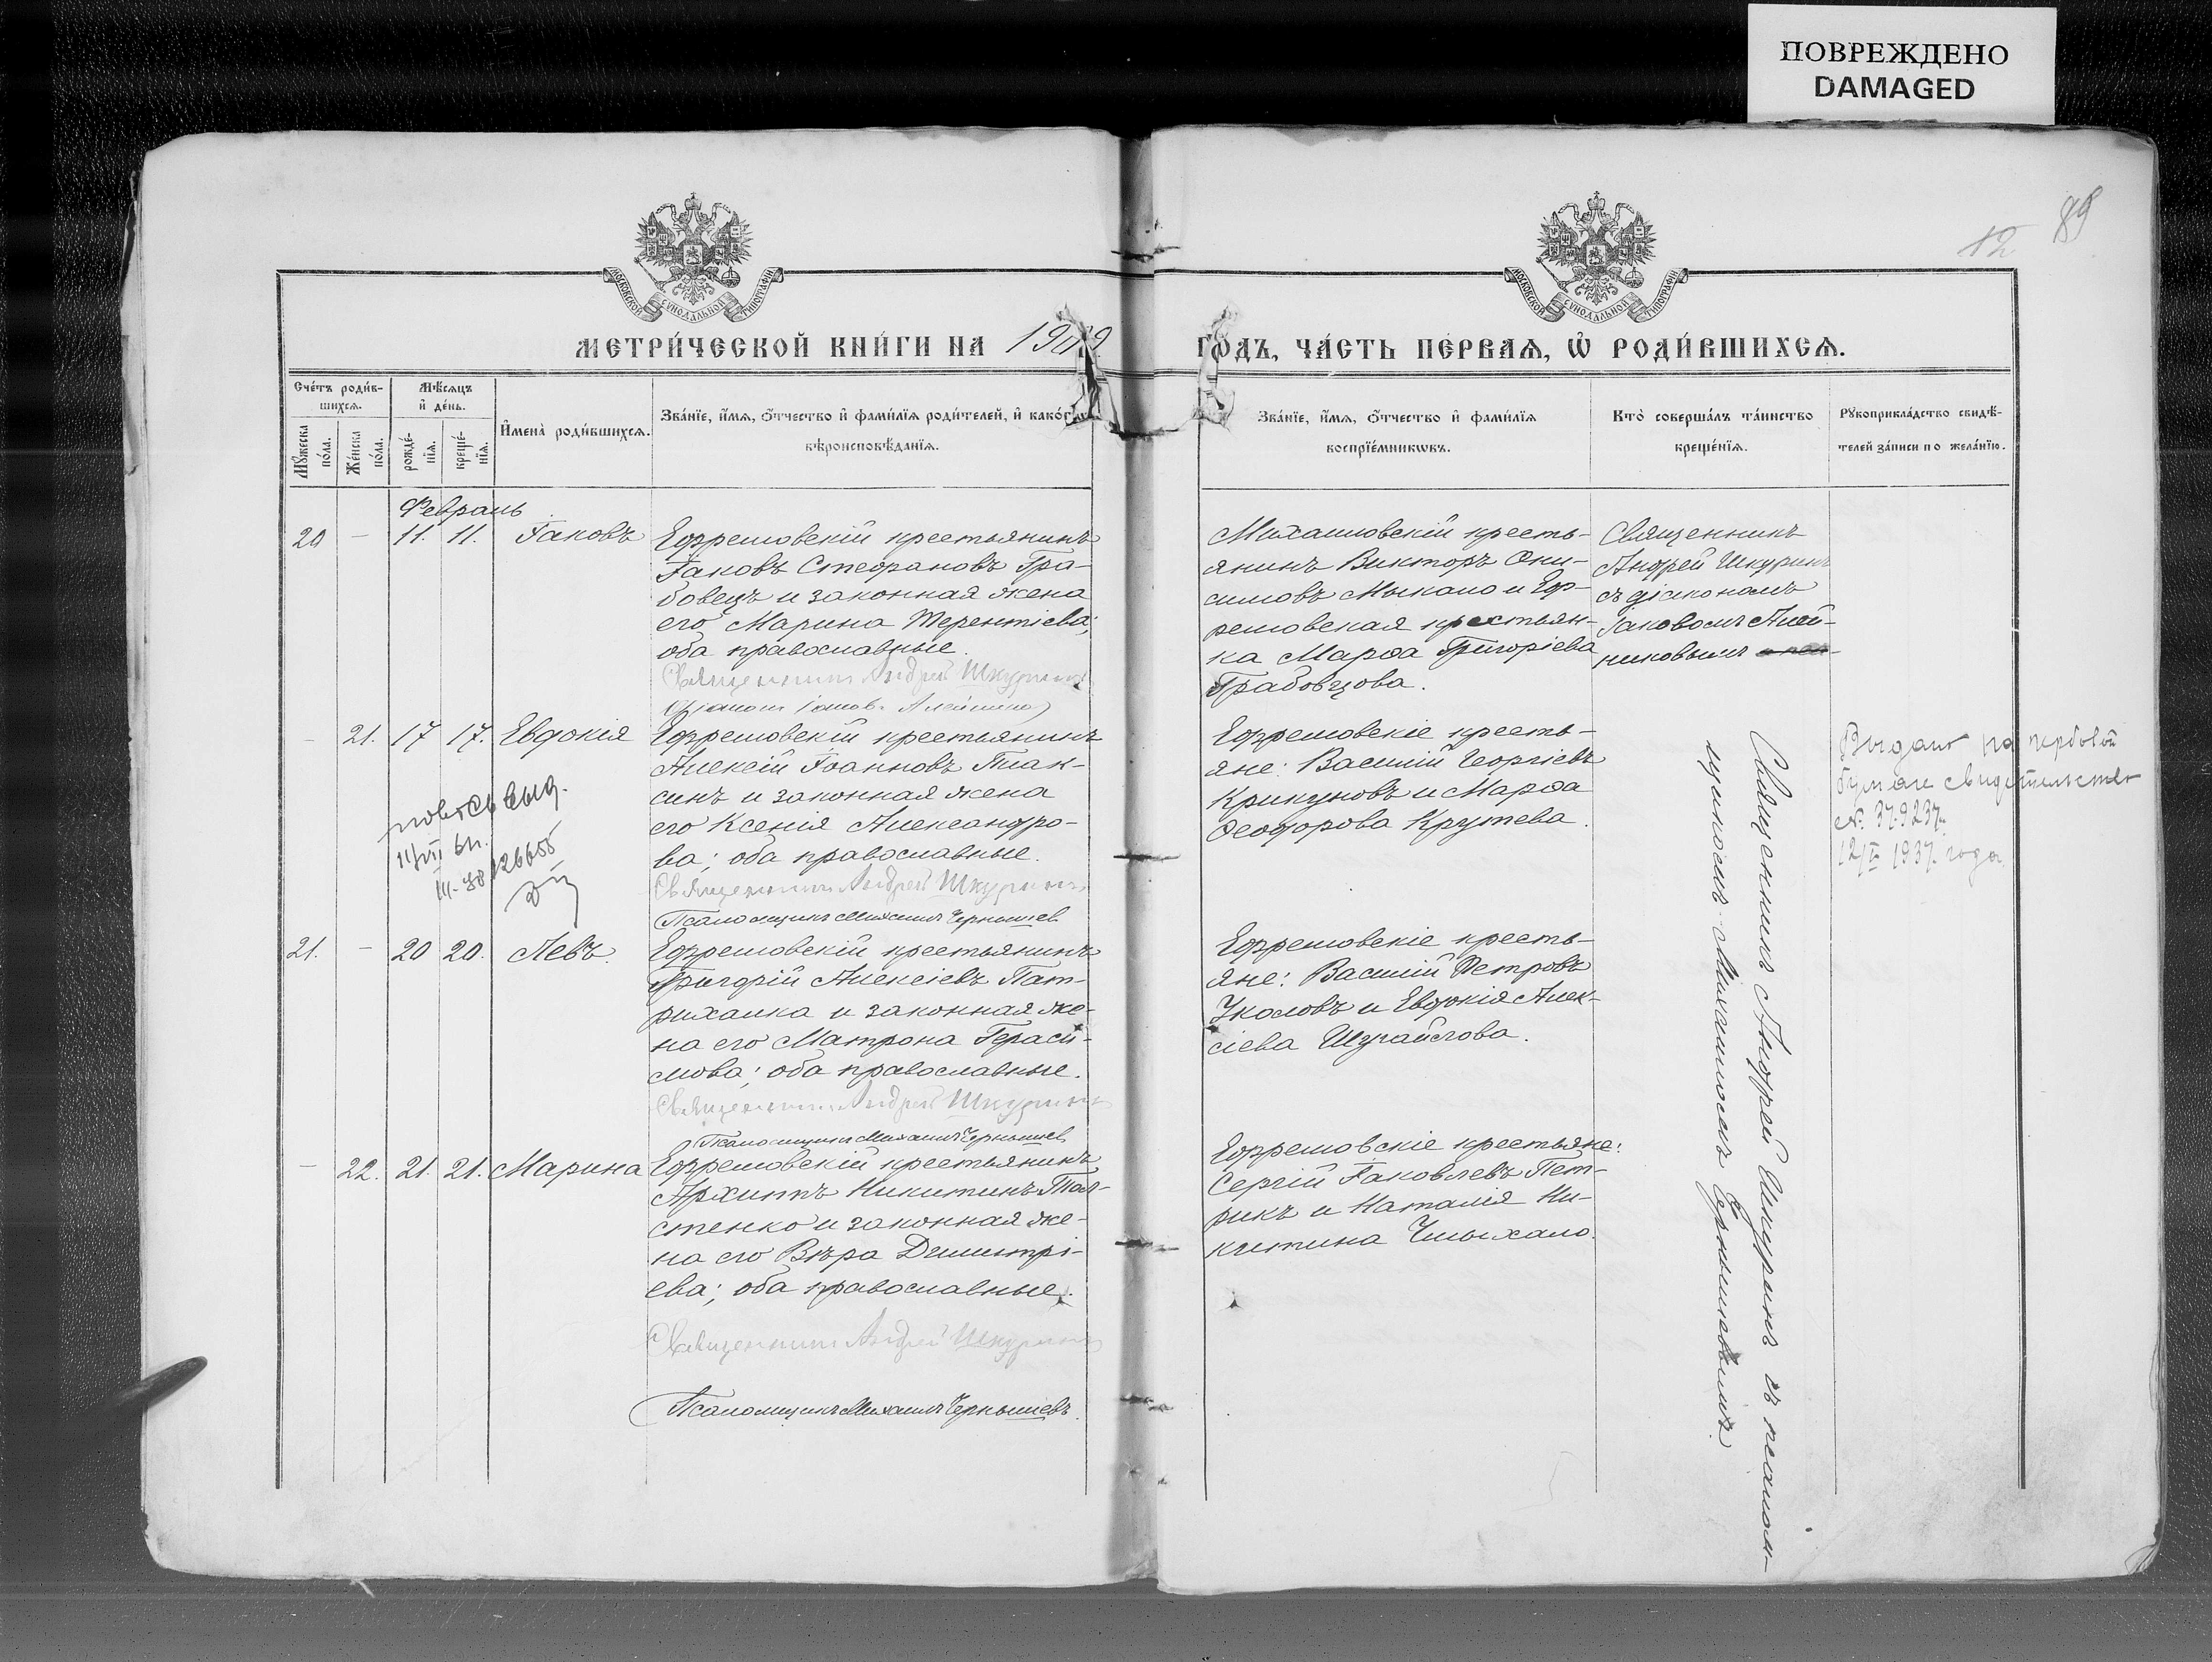 ПОВРЕЖДЕНО
DAMAGED
89
12
МОСКОВСКОЙ СѴНОДАЛЬНОЙ ТИПОГРАФІИ
МОСКОВСКОЙ СѴНОДАЛЬНОЙ ТИПОГРАФІИ
МЕТРИ́ЧЕСКОЙ КНИ́ГИ НА 1909
ГО́ДЪ, ЧА́СТЬ ПЕ́РВАѦ, Ѡ҆ РОДИ́ВШИХСѦ.
Сче́тъ роди́в-
шихсѧ.
Мꙋ́жеска по́ла.
Же́нска по́ла.
Мѣ́сѧцъ
и҆ де́нь.
рожде́-
нїѧ.
креще́-
нїѧ.
И҆мена̀ роди́вшихсѧ.
Зва́нїе, и҆́мѧ, ѻ҆́тчество и҆ фами́лїѧ роди́телей, и҆ како́гѡ
вѣроисповѣ́данїѧ.
Зва́нїе, и҆́мѧ, ѻ҆́тчество и҆ фами́лїѧ
воспрїе́мникѡвъ.
Кто̀ соверша́лъ та́инство
креще́нїѧ.
Рꙋкоприкла́дство свидѣ́-
телей за́писи по жела́нїю.
Февраль
20 — 11. 11. Іаковъ
Ефремовскій крестьянинъ
Іаковъ Стефановъ Гра-
бовецъ и законная жена
его Марина Терентіева;
оба православные.
Священникъ Андрей Шкуринъ
Діаконъ Іаковъ
Михаиловскій кресть-
янинъ Викторъ Они-
симовъ Мыкало и Еф-
ремовская крестьян-
ка Марѳа Григоріева
Грабовцова.
Священникъ
Андрей Шкуринъ
съ діакономъ
Іаковомъ Алей-
никовымъ
— 21. 17 17. Евдокія
Ефремовскій крестьянинъ
Алексій Іоанновъ Плак-
синъ и законная жена
его Ксенія Александро-
ва; оба православные.
Священникъ Андрей Шкуринъ
Псаломщикъ Михаилъ Чернышев
повтсв выд.
11/VII 61г.
126655
Ефремовскіе кресть-
яне: Василій Георгіевъ
Крикуновъ и Марѳа
Ѳеодорова Крутева.
Священникъ Андрей Шкуринъ съ псалом-
щикомъ Михаиломъ Чернышевымъ.
Выдано на гербовой
бумаге свидетельство
№ 379237.
12/I 1937 года.
21. — 20 20. Левъ.
Ефремовскій крестьянинъ
Григорій Алексіевъ Пат-
рихалка и законная же-
на его Матрона Гераси-
мова; оба православные.
Священникъ Андрей Шкуринъ
Псаломщикъ Михаилъ Чернышев
Ефремовскіе кресть-
яне: Василій Петровъ
Уколовъ и Евдокія Алек-
сіева
— 22. 21. 21. Марина
Ефремовскій крестьянинъ
Архиппъ Никитинъ Тол-
стенко и законная же-
на его Вѣра Димитрі-
ева; оба православные.
Священникъ Андрей Шкуринъ
Псаломщикъ Михаилъ Чернышевъ.
Ефремовскіе крестьяне:
Сергій Іаковлевъ Пет-
рикъ и Наталія Ни-
китина Чмыхало.